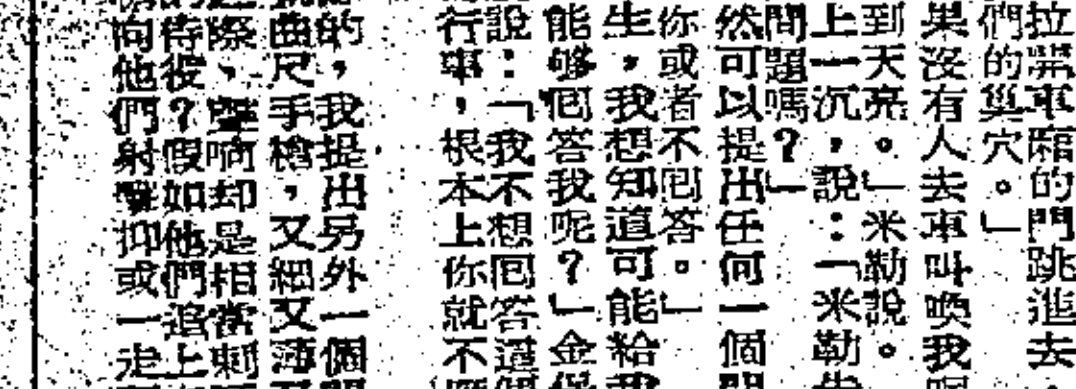 拉開車廂的門跳進去
們的巢穴。」
果沒有人去車叫喚我
到天亮。」米勒說。
上一沉,說:「米勒
問題嗎?」
然可以提出任何一個
你或者不囘答。」
生,我想知道可能給我
能够囘答我呢?」金
說:「我不想囘答這個
行事,根本上你就不
的,我提出另外一個
曲尺手槍,又細又薄
際,聲响却是相當刺
待彼?假如他們追上
向他們射擊抑或一走